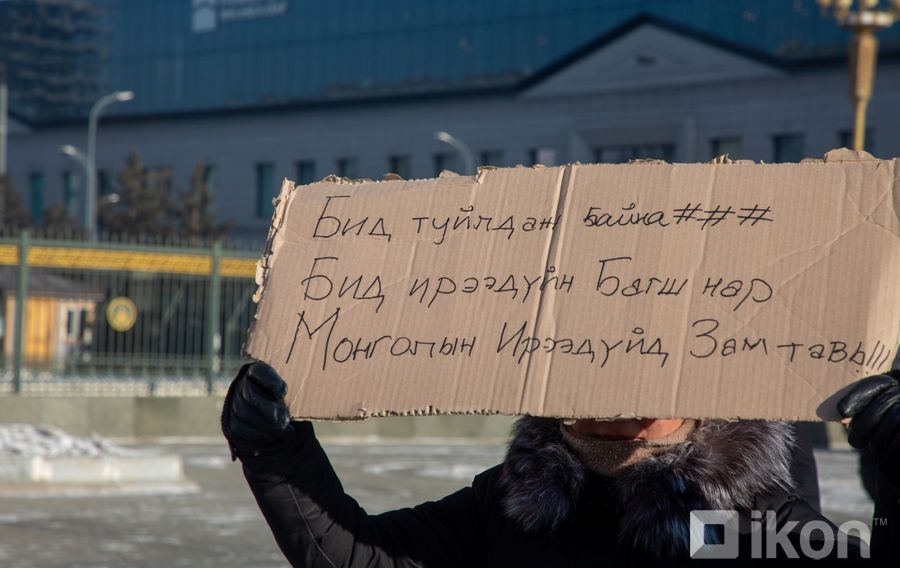 Бид туйлдаж байна###
Бид ирээдүйн Багш нар
Монголын Ирээдүйд Зам тавь!!!
ikon™